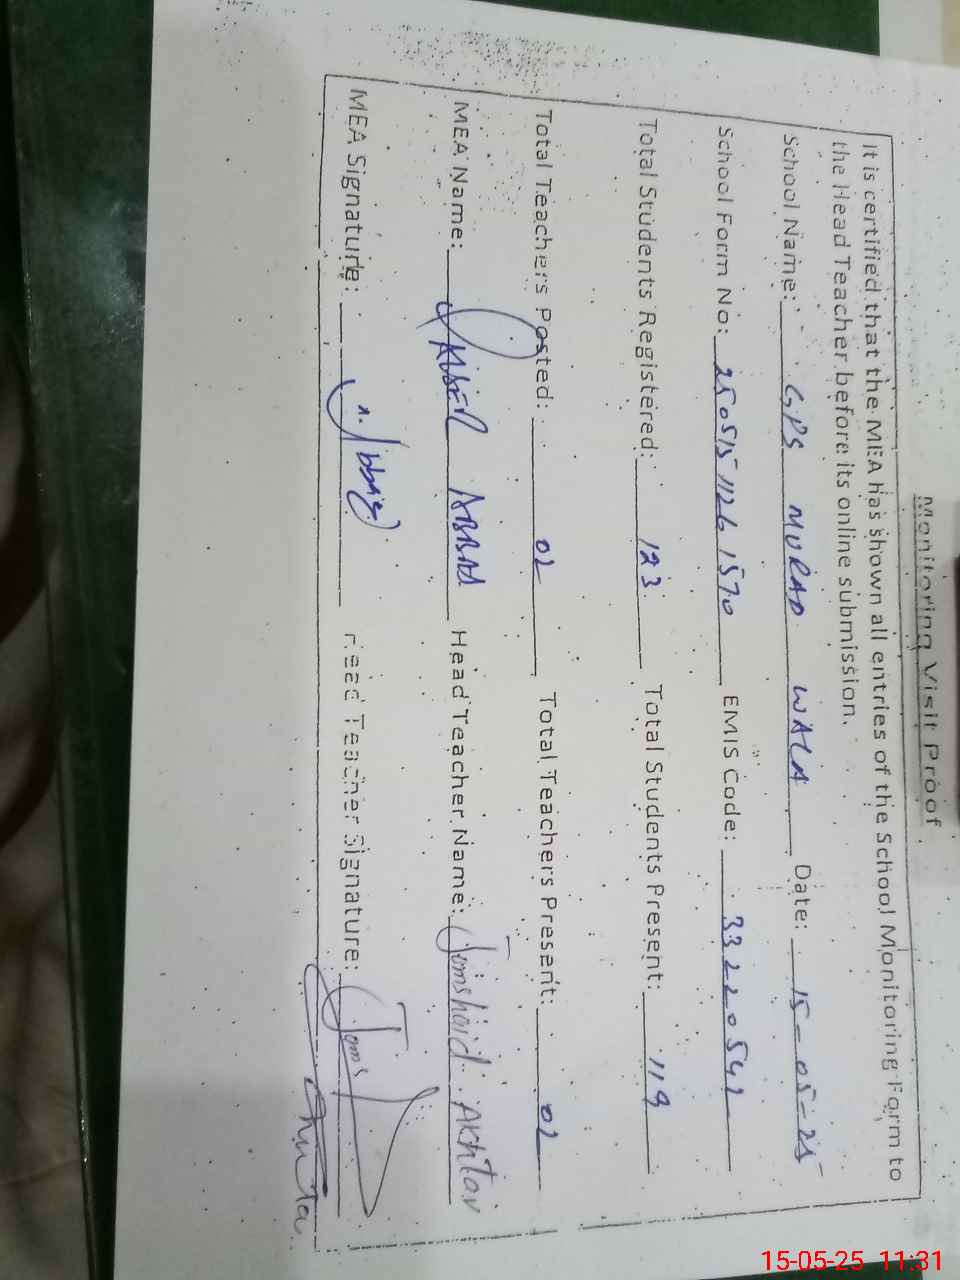 Monitoring Visit Proof
It is certified that the MEA has shown all entries of the School Monitoring Form to
the Head Teacher before its online submission.
School Name: GPS MURAD WALA Date: 15-05-25
School Form No: 250515 1126 1570 EMIS Code: 33220541
Total Students Registered: 123 Total Students Present: 119
Total Teachers Posted: 02 Total Teachers Present: 02
MEA Name: ABBAS Head Teacher Name: Jamshaid Akhtar
MEA Signature: Head Teacher Signature:
15-05-25 11:31